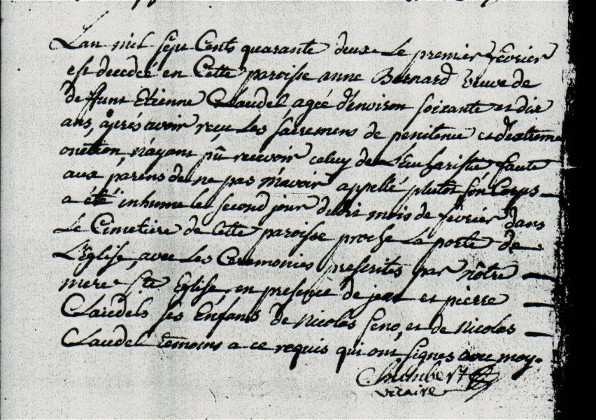 Lan mil sept Cents quarante deux Le premier fevrier
est decedée en Cette paroisse anne Bernard veuve de
deffunt Etienne Claudel agée d'environ soixante et dix
ans, après avoir receu Les sacremens de penitence et dextreme
onction, n'ayant pû recevoir celuy de L'eucharistie faute
aux parens de ne pas m'avoir appellé plutôt son Corps
a été inhumé le second jour dudit mois de fevrier dans
Le Cimetiere de Cette paroisse proche La porte de
L'Eglise, avec Les Ceremonies prescrites par nôtre
mere ste Eglise, en presence de jean et pierre
Claudels ses Enfans de Nicolas et de Nicolas
Claudel temoins a ce requis qui ont signés avec moy.
vicaire